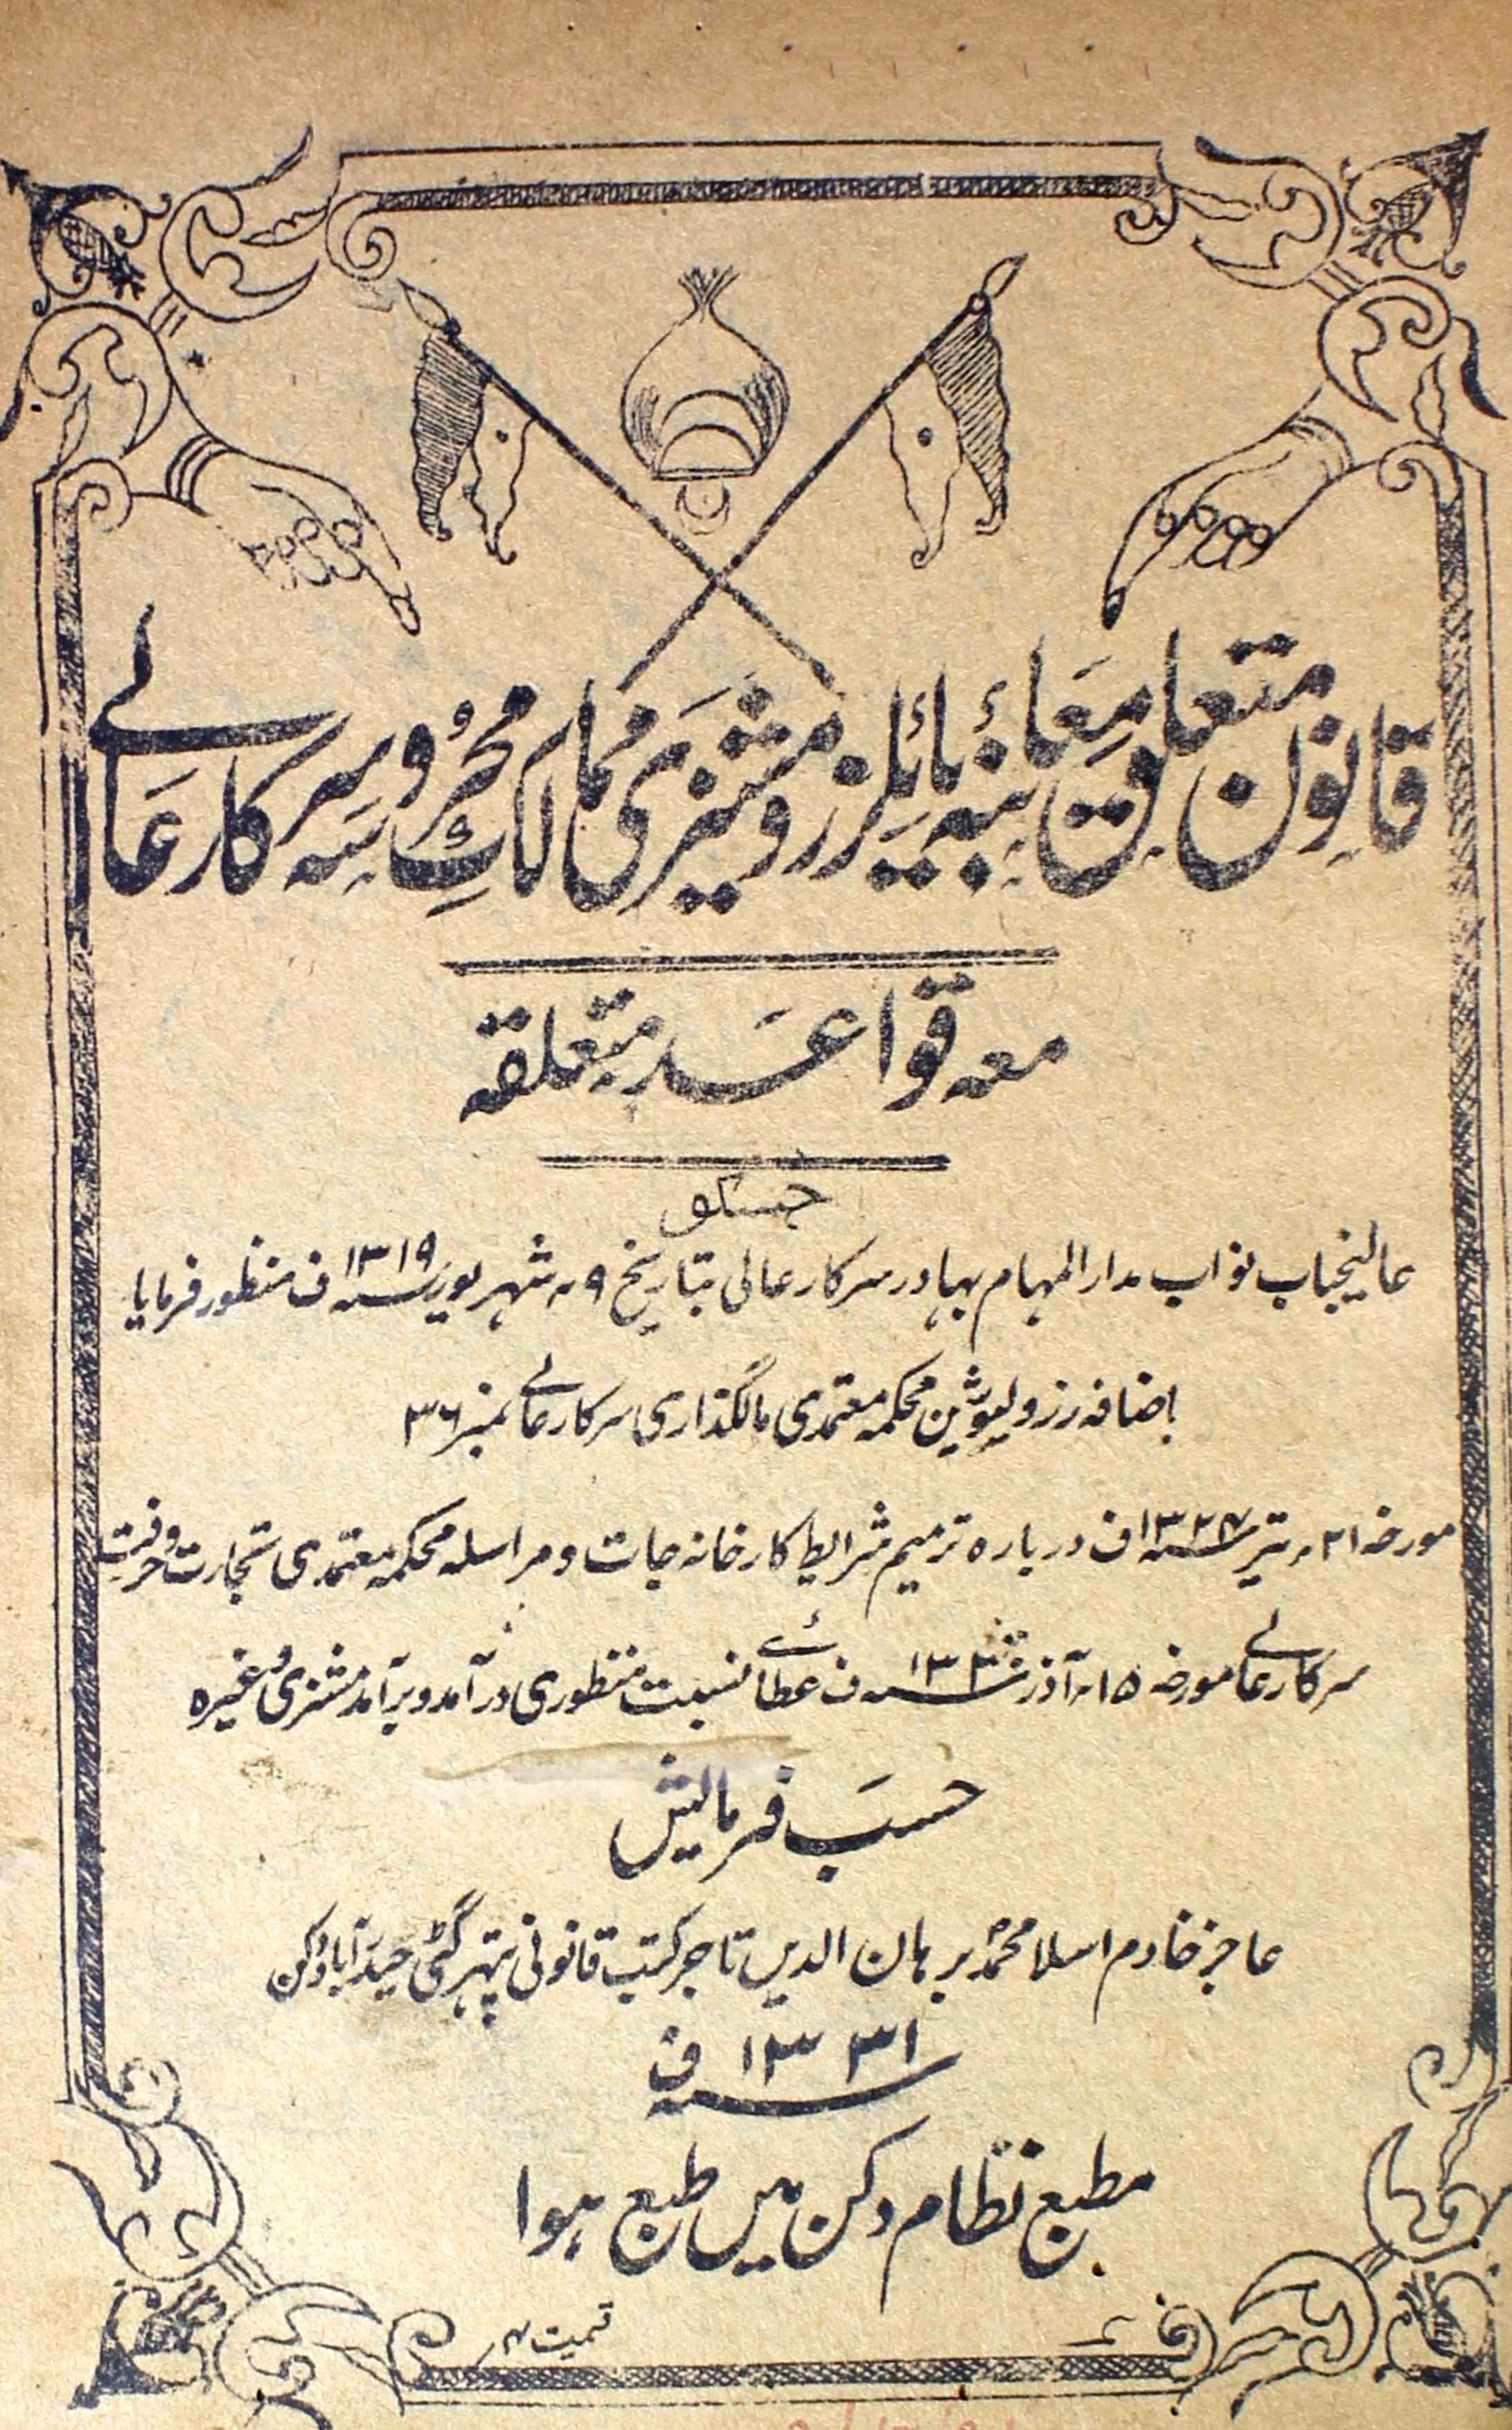 قانون متعلق معائنہ بائلرز و مشنری ممالک محروسہ سرکار عالے
معہ قواعد متعلقہ
جسکو
عالیجناب نواب مدار المہام بہادر سرکار عالی بتاریخ ۹؍ شہریور ۱۳۱۹؁ف منظور فرمایا
باضافہ رزولیوشن محکمہ معتمدی مالگذاری سرکار عالے نمبر ۳۶
مورخہ ۲۱؍ تیر ۱۳۲۷؁ف درباره ترمیم شرایط کارخانہ جات و مراسلہ محکمہ معتمدی تجارت و حرفت
سرکار عالے مورخہ ۱۵؍ آذر ؁ف عطائے نسبت منظوری در آمد و برآمد مشنری وغیرہ
حسب فرمایش
عاجز خادم اسلام محمد برہان الدین تاجر کتب قانونی پتہر گٹی حیدرآباد دکن
۱۳۳۱؁ ف
مطبع نظام دکن میں طبع ہوا
قیمت ۴؍